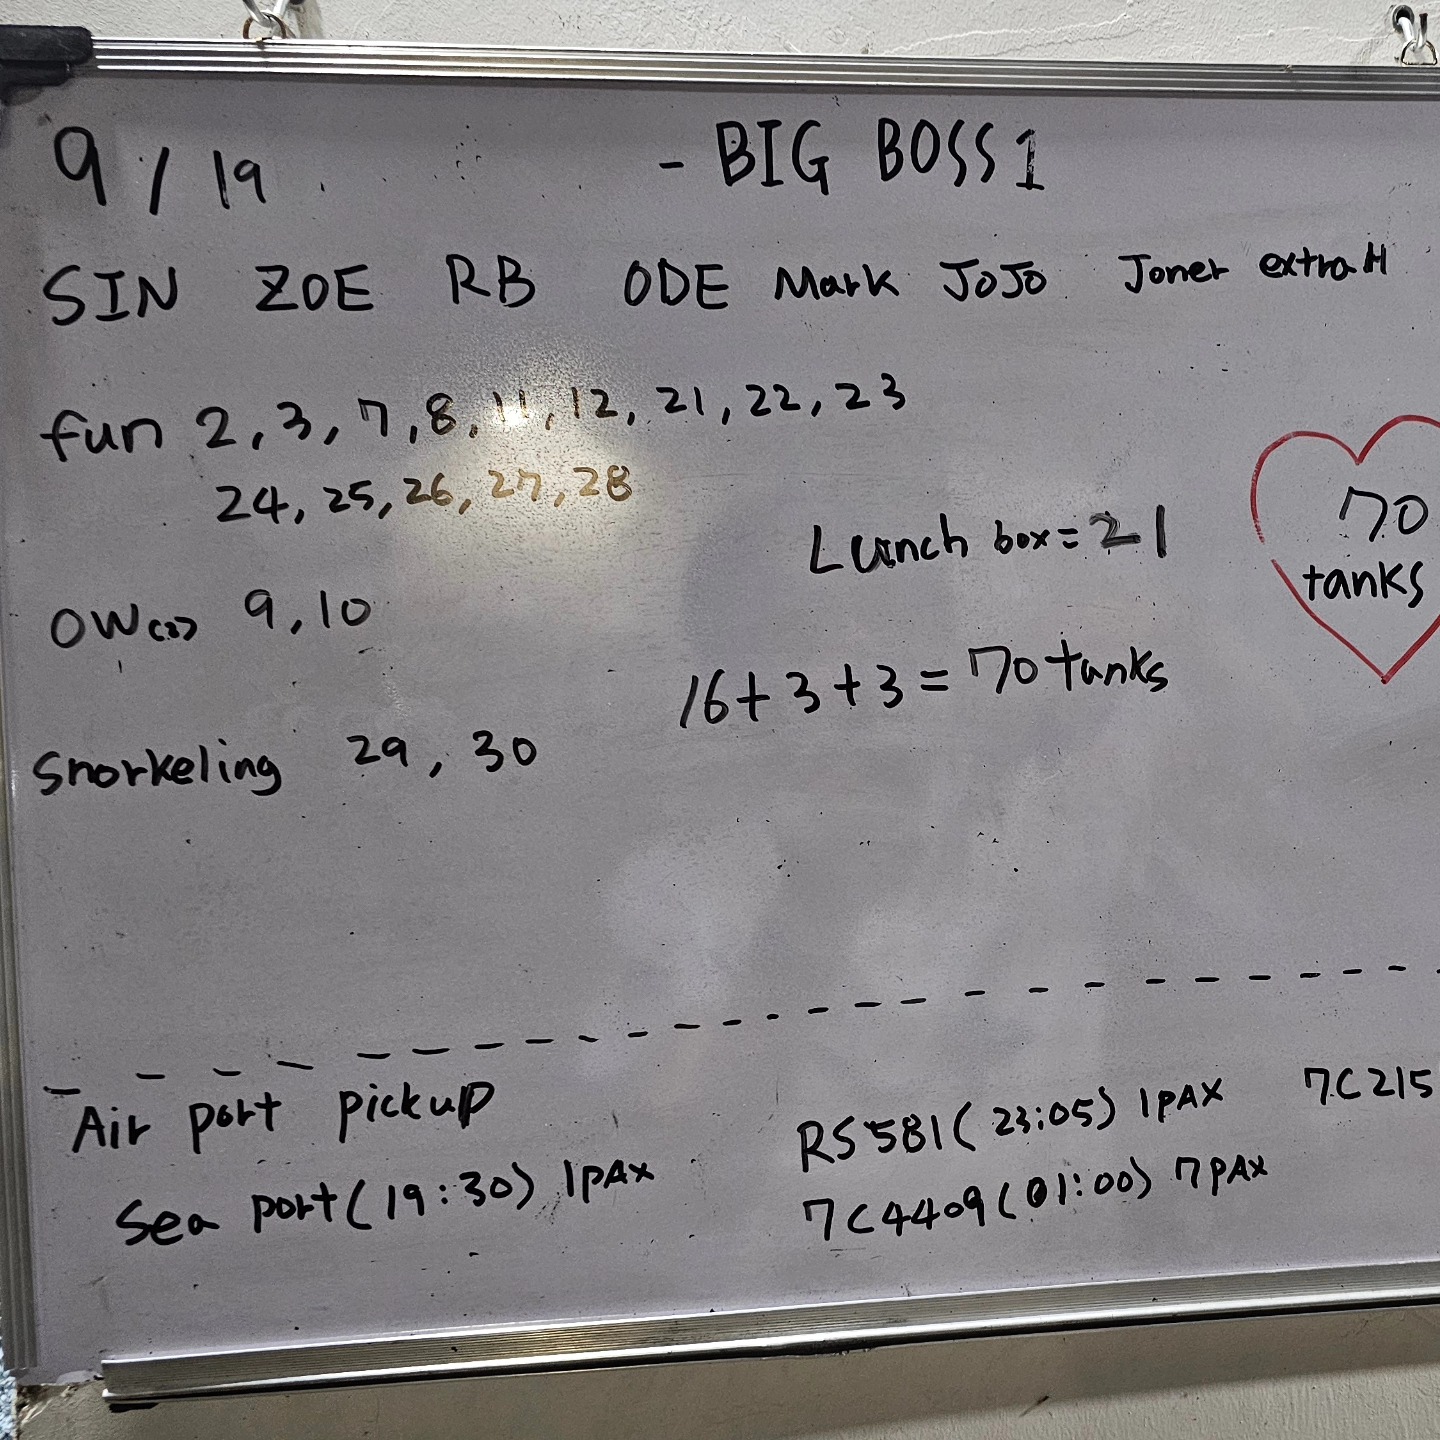 9/19 - BIG BOSS 1
SIN ZOE RB ODE Mark JOJO Joner extra M
fun 2, 3, 7, 8, 11, 12, 21, 22, 23
24, 25, 26, 27, 28
Lunch box = 21
70
tanks
OW 9, 10
16 + 3 + 3 = 70 tanks
Snorkeling 29, 30
Air port pickup
Sea port (19:30) 1PAX
RS581 (23:05) 1PAX 7C215
7C4409 (01:00) 7PAX